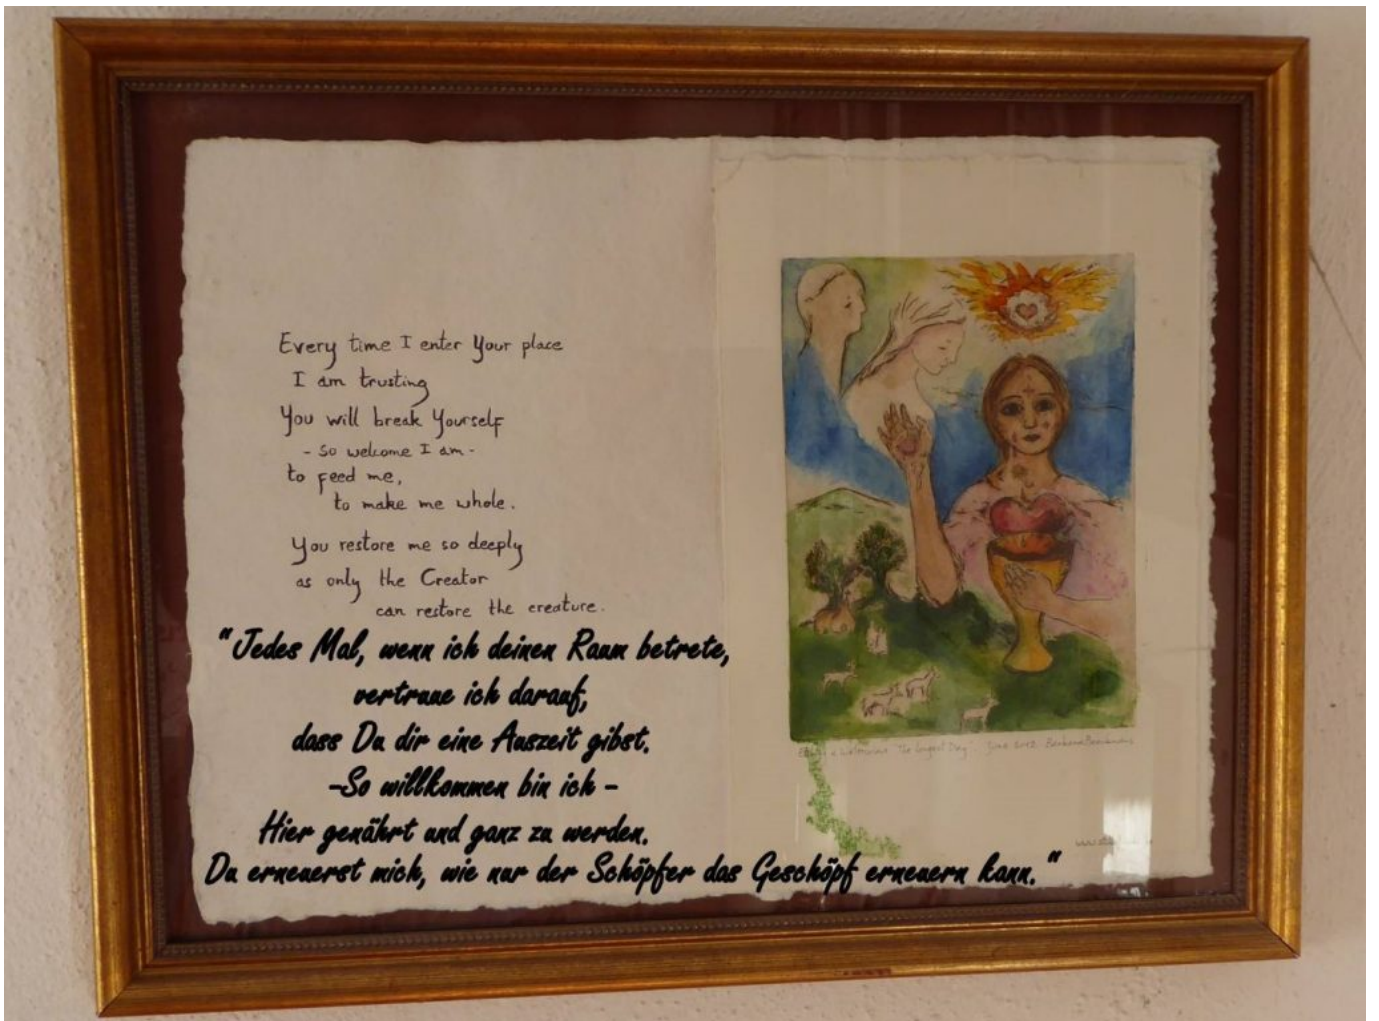 Every time I enter Your place
I am trusting
You will break Yourself
- so welcome I am -
to feed me,
to make me whole.
You restore me so deeply
as only the Creator
can restore the creature.
"Jedes Mal, wenn ich deinen Raum betrete,
vertraue ich darauf,
dass Du dir eine Auszeit gibst.
-So willkommen bin ich -
Hier genährt und ganz zu werden.
Du erneuerst mich, wie nur der Schöpfer das Geschöpf erneuern kann."
"The longest Day" June